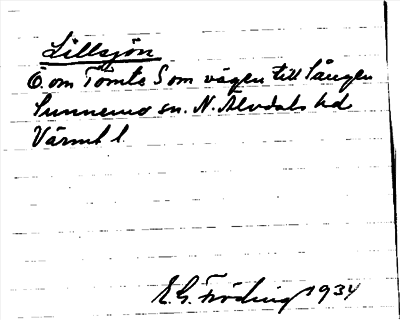 Lillsjön
Ö. om Tomta S om vägen till Lången
Sunnemo sn. N. Älvdals hd
Värml l.
E.G. Fröding 1934